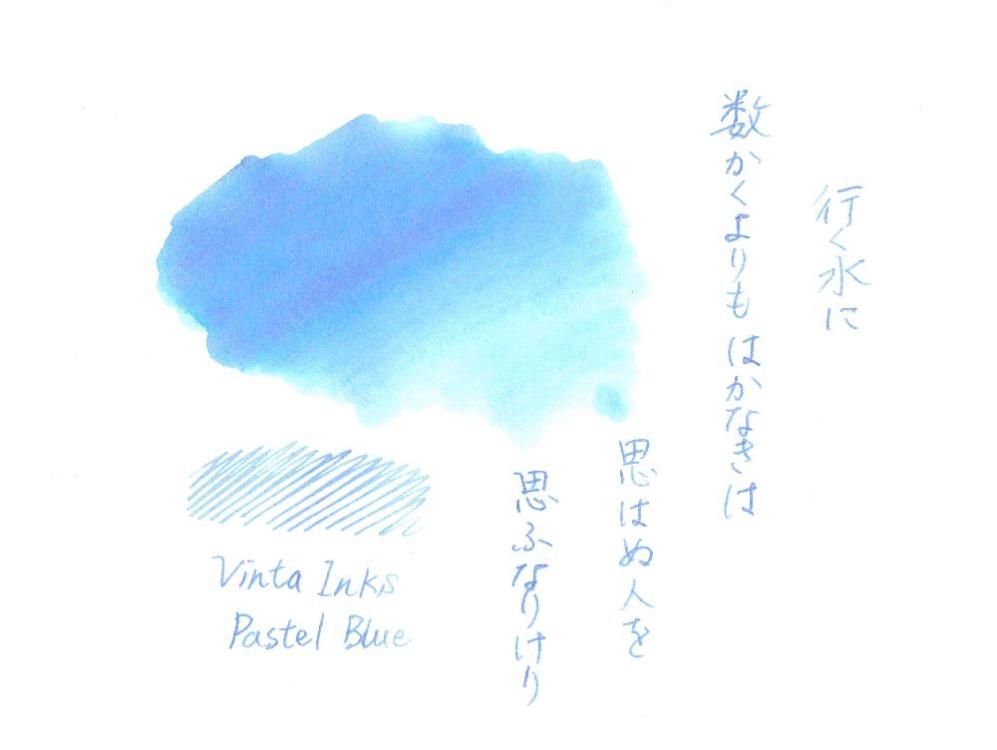 行く水に
数かくよりもはかなきは
思はぬ人を
思ふなりけり
Vinta Inks
Pastel Blue